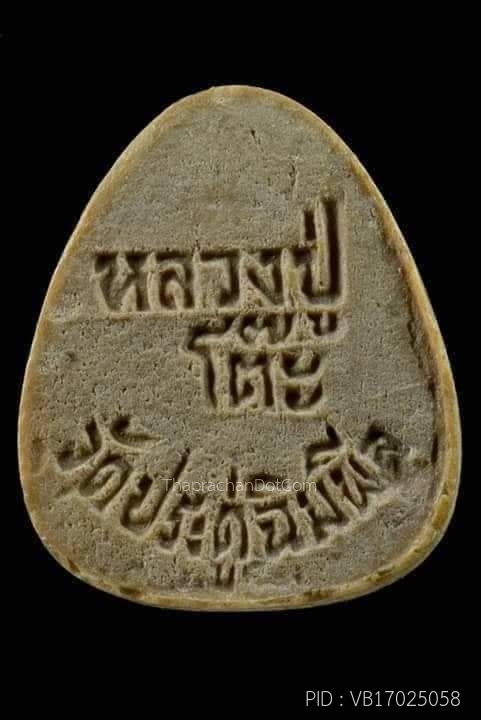 หลวงปู่
โต๊ะ
วัดประดู่ฉิมพลี
ThaprachanDotCom
PID : VB17025058